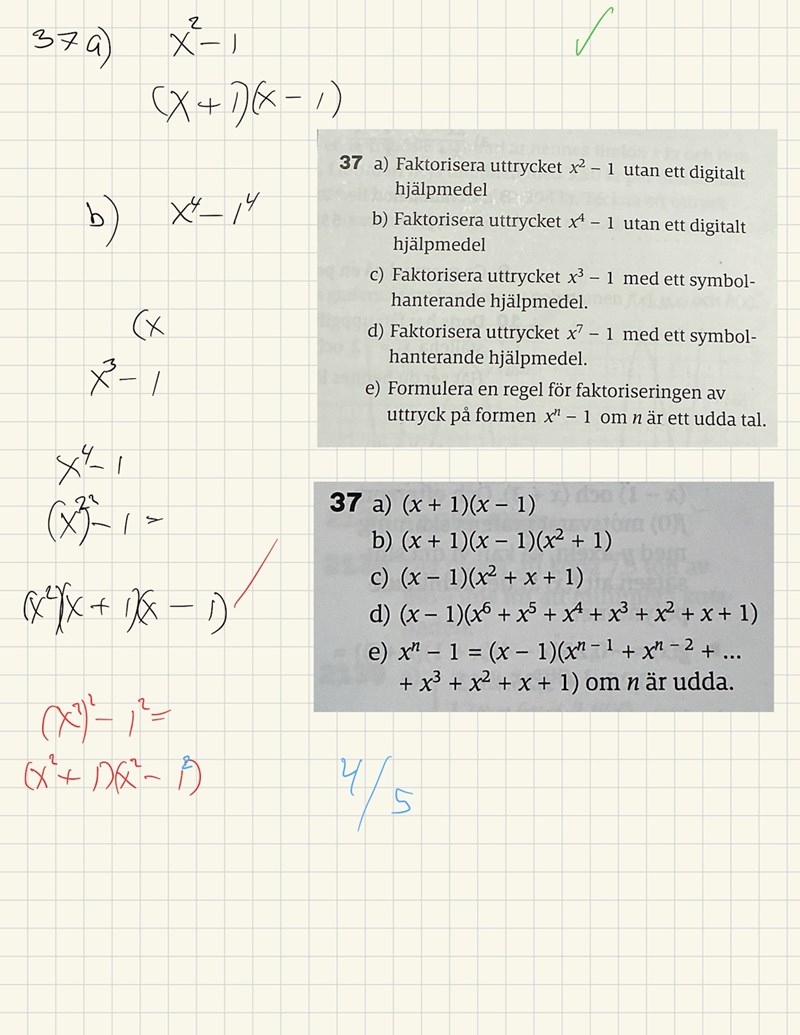 37 a) x² – 1
(x + 1)(x – 1)
37 a) Faktorisera uttrycket x² – 1 utan ett digitalt
hjälpmedel
b) Faktorisera uttrycket x⁴ – 1 utan ett digitalt
hjälpmedel
c) Faktorisera uttrycket x³ – 1 med ett symbol-
hanterande hjälpmedel.
d) Faktorisera uttrycket x⁷ – 1 med ett symbol-
hanterande hjälpmedel.
e) Formulera en regel för faktoriseringen av
uttryck på formen xⁿ – 1 om n är ett udda tal.
b) x⁴ – 1⁴
(x
x³ – 1
x⁴ – 1
(x²)² – 1 =
(x²)(x + 1)(x – 1)
(x²)² – 1² =
(x² + 1)(x² – 1²)
37 a) (x + 1)(x – 1)
b) (x + 1)(x – 1)(x² + 1)
c) (x – 1)(x² + x + 1)
d) (x – 1)(x⁶ + x⁵ + x⁴ + x³ + x² + x + 1)
e) xⁿ – 1 = (x – 1)(xⁿ⁻¹ + xⁿ⁻² + ...
+ x³ + x² + x + 1) om n är udda.
4/5